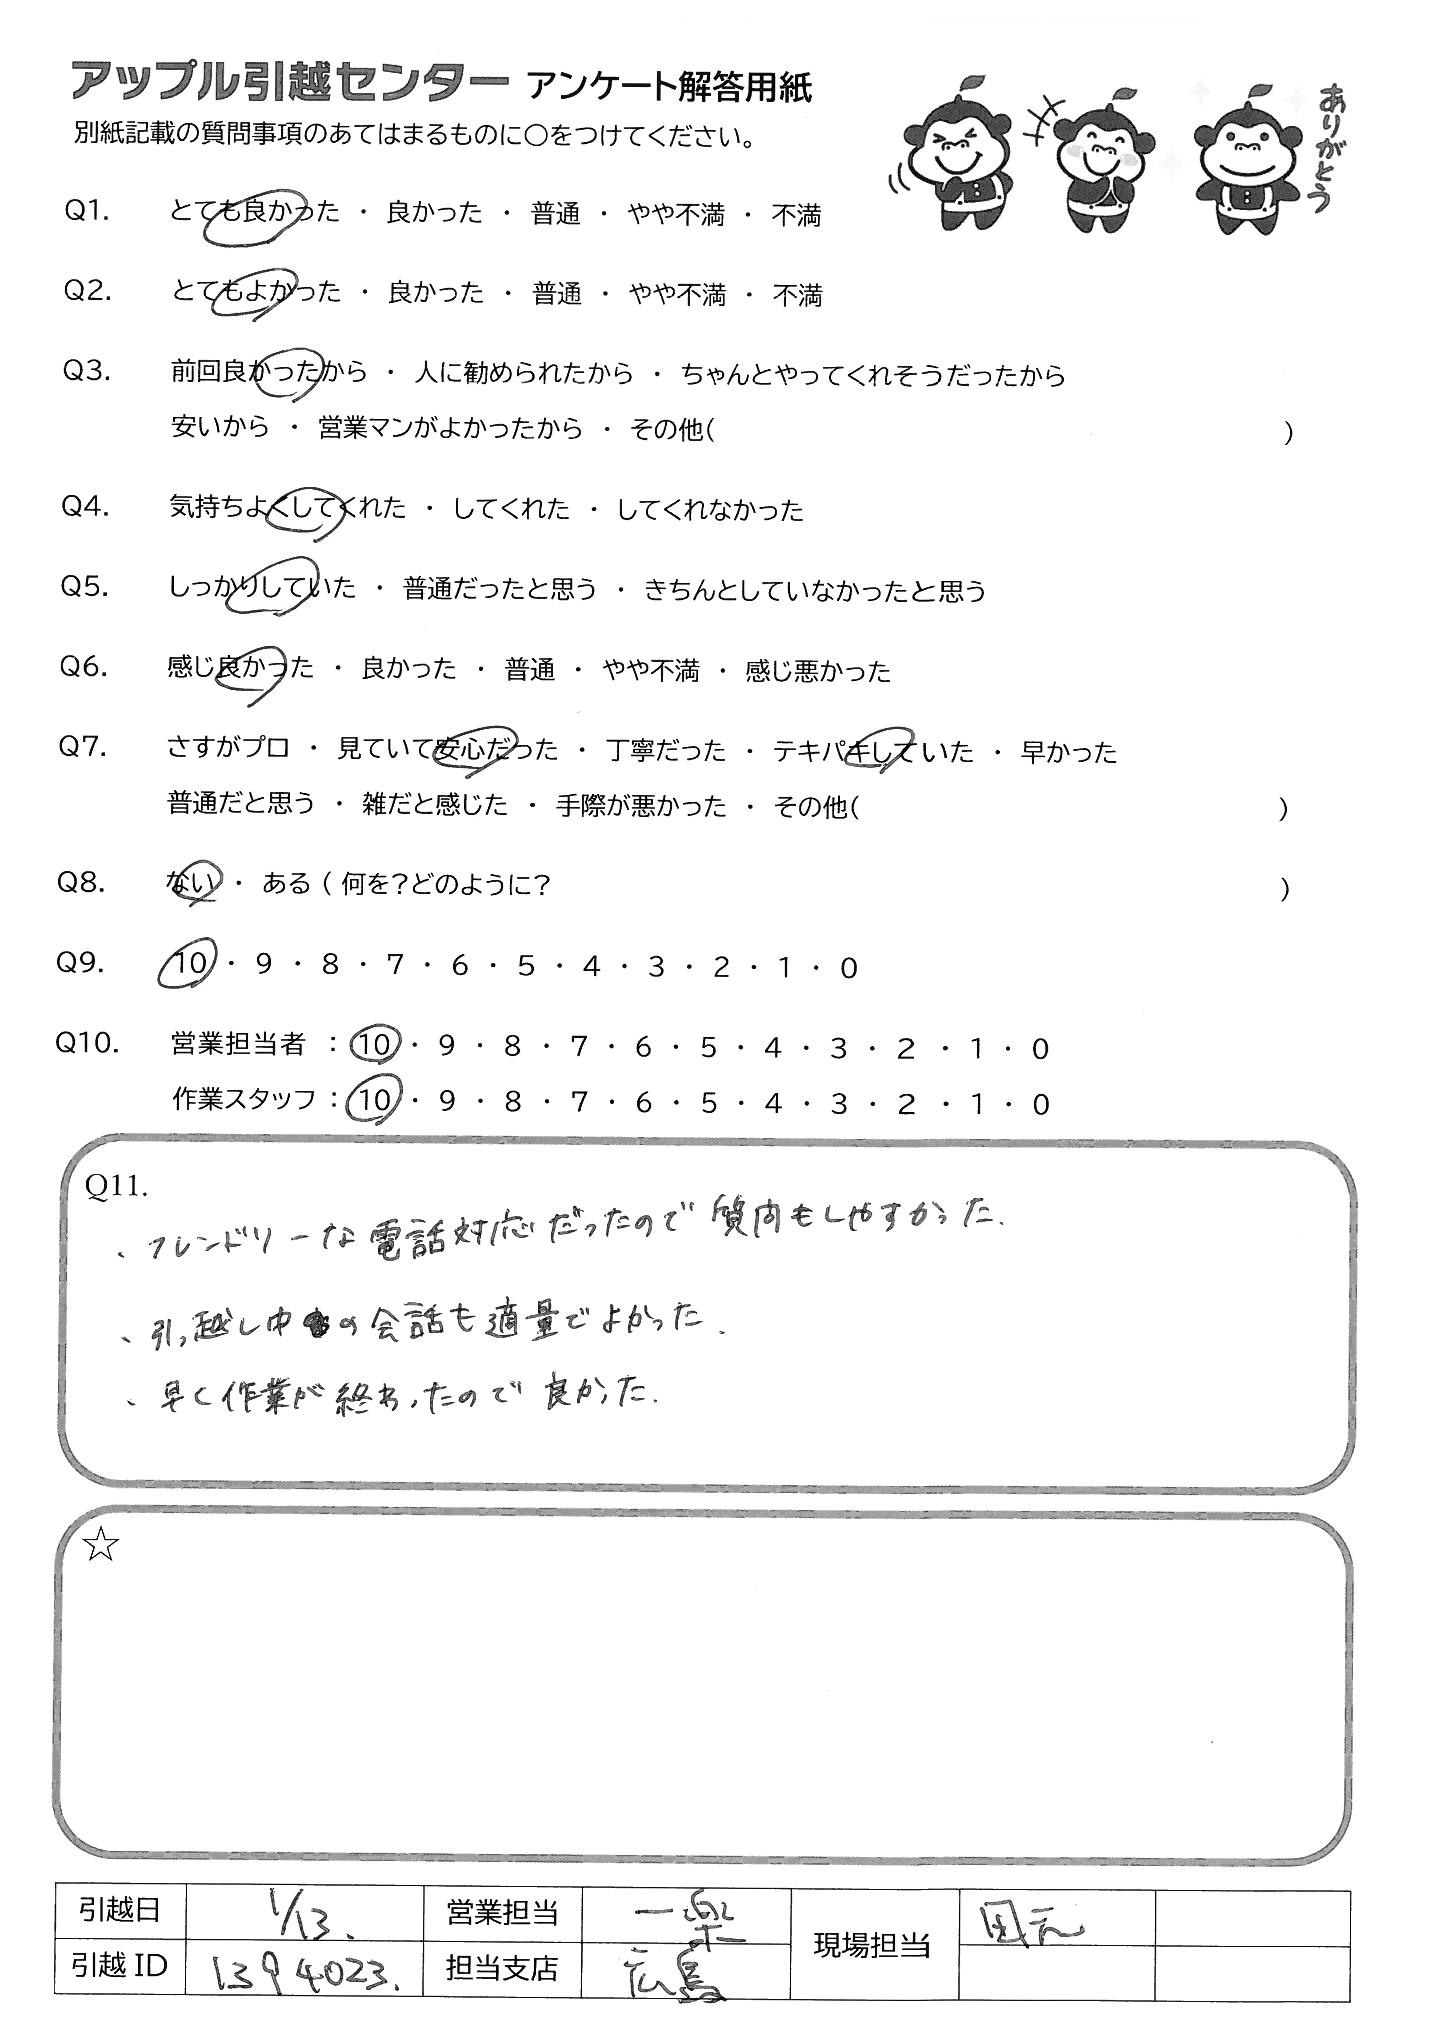 アップル引越センター アンケート解答用紙
別紙記載の質問事項のあてはまるものに○をつけてください。
ありがとう
Q1. とても良かった ・ 良かった ・ 普通 ・ やや不満 ・ 不満
Q2. とてもよかった ・ 良かった ・ 普通 ・ やや不満 ・ 不満
Q3. 前回良かったから ・ 人に勧められたから ・ ちゃんとやってくれそうだったから
安いから ・ 営業マンがよかったから ・ その他( )
Q4. 気持ちよくしてくれた ・ してくれた ・ してくれなかった
Q5. しっかりしていた ・ 普通だったと思う ・ きちんとしていなかったと思う
Q6. 感じ良かった ・ 良かった ・ 普通 ・ やや不満 ・ 感じ悪かった
Q7. さすがプロ ・ 見ていて安心だった ・ 丁寧だった ・ テキパキしていた ・ 早かった
普通だと思う ・ 雑だと感じた ・ 手際が悪かった ・ その他( )
Q8. ない ・ ある ( 何を?どのように? )
Q9. 10 ・ 9 ・ 8 ・ 7 ・ 6 ・ 5 ・ 4 ・ 3 ・ 2 ・ 1 ・ 0
Q10. 営業担当者 : 10 ・ 9 ・ 8 ・ 7 ・ 6 ・ 5 ・ 4 ・ 3 ・ 2 ・ 1 ・ 0
作業スタッフ : 10 ・ 9 ・ 8 ・ 7 ・ 6 ・ 5 ・ 4 ・ 3 ・ 2 ・ 1 ・ 0
Q11.
、フレンドリーな電話対応だったので質問もしやすかった.
、引っ越し中の会話も適量でよかった.
、早く作業が終わったので良かった.
☆
引越日 1/13. 営業担当 一楽 現場担当
引越 ID 1394023. 担当支店 広島